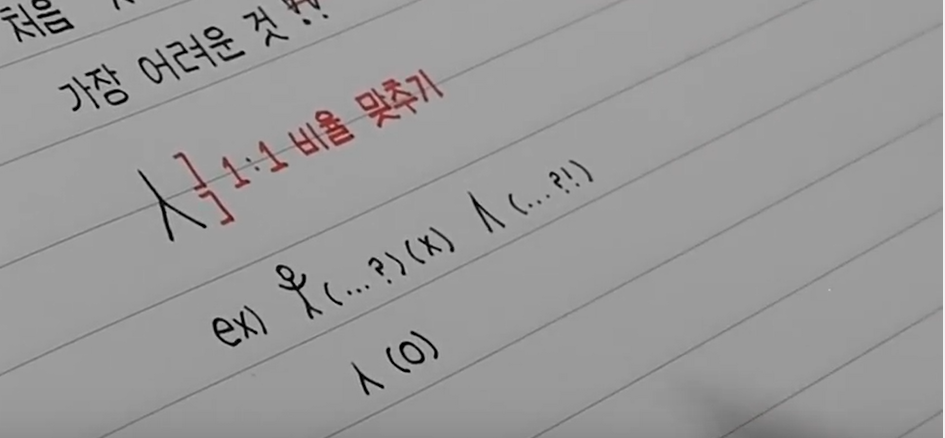 처음
가장 어려운 것!!
人] 1:1 비율 맞추기
ex) (...?)(x) ㅅ(...?!)
人(O)